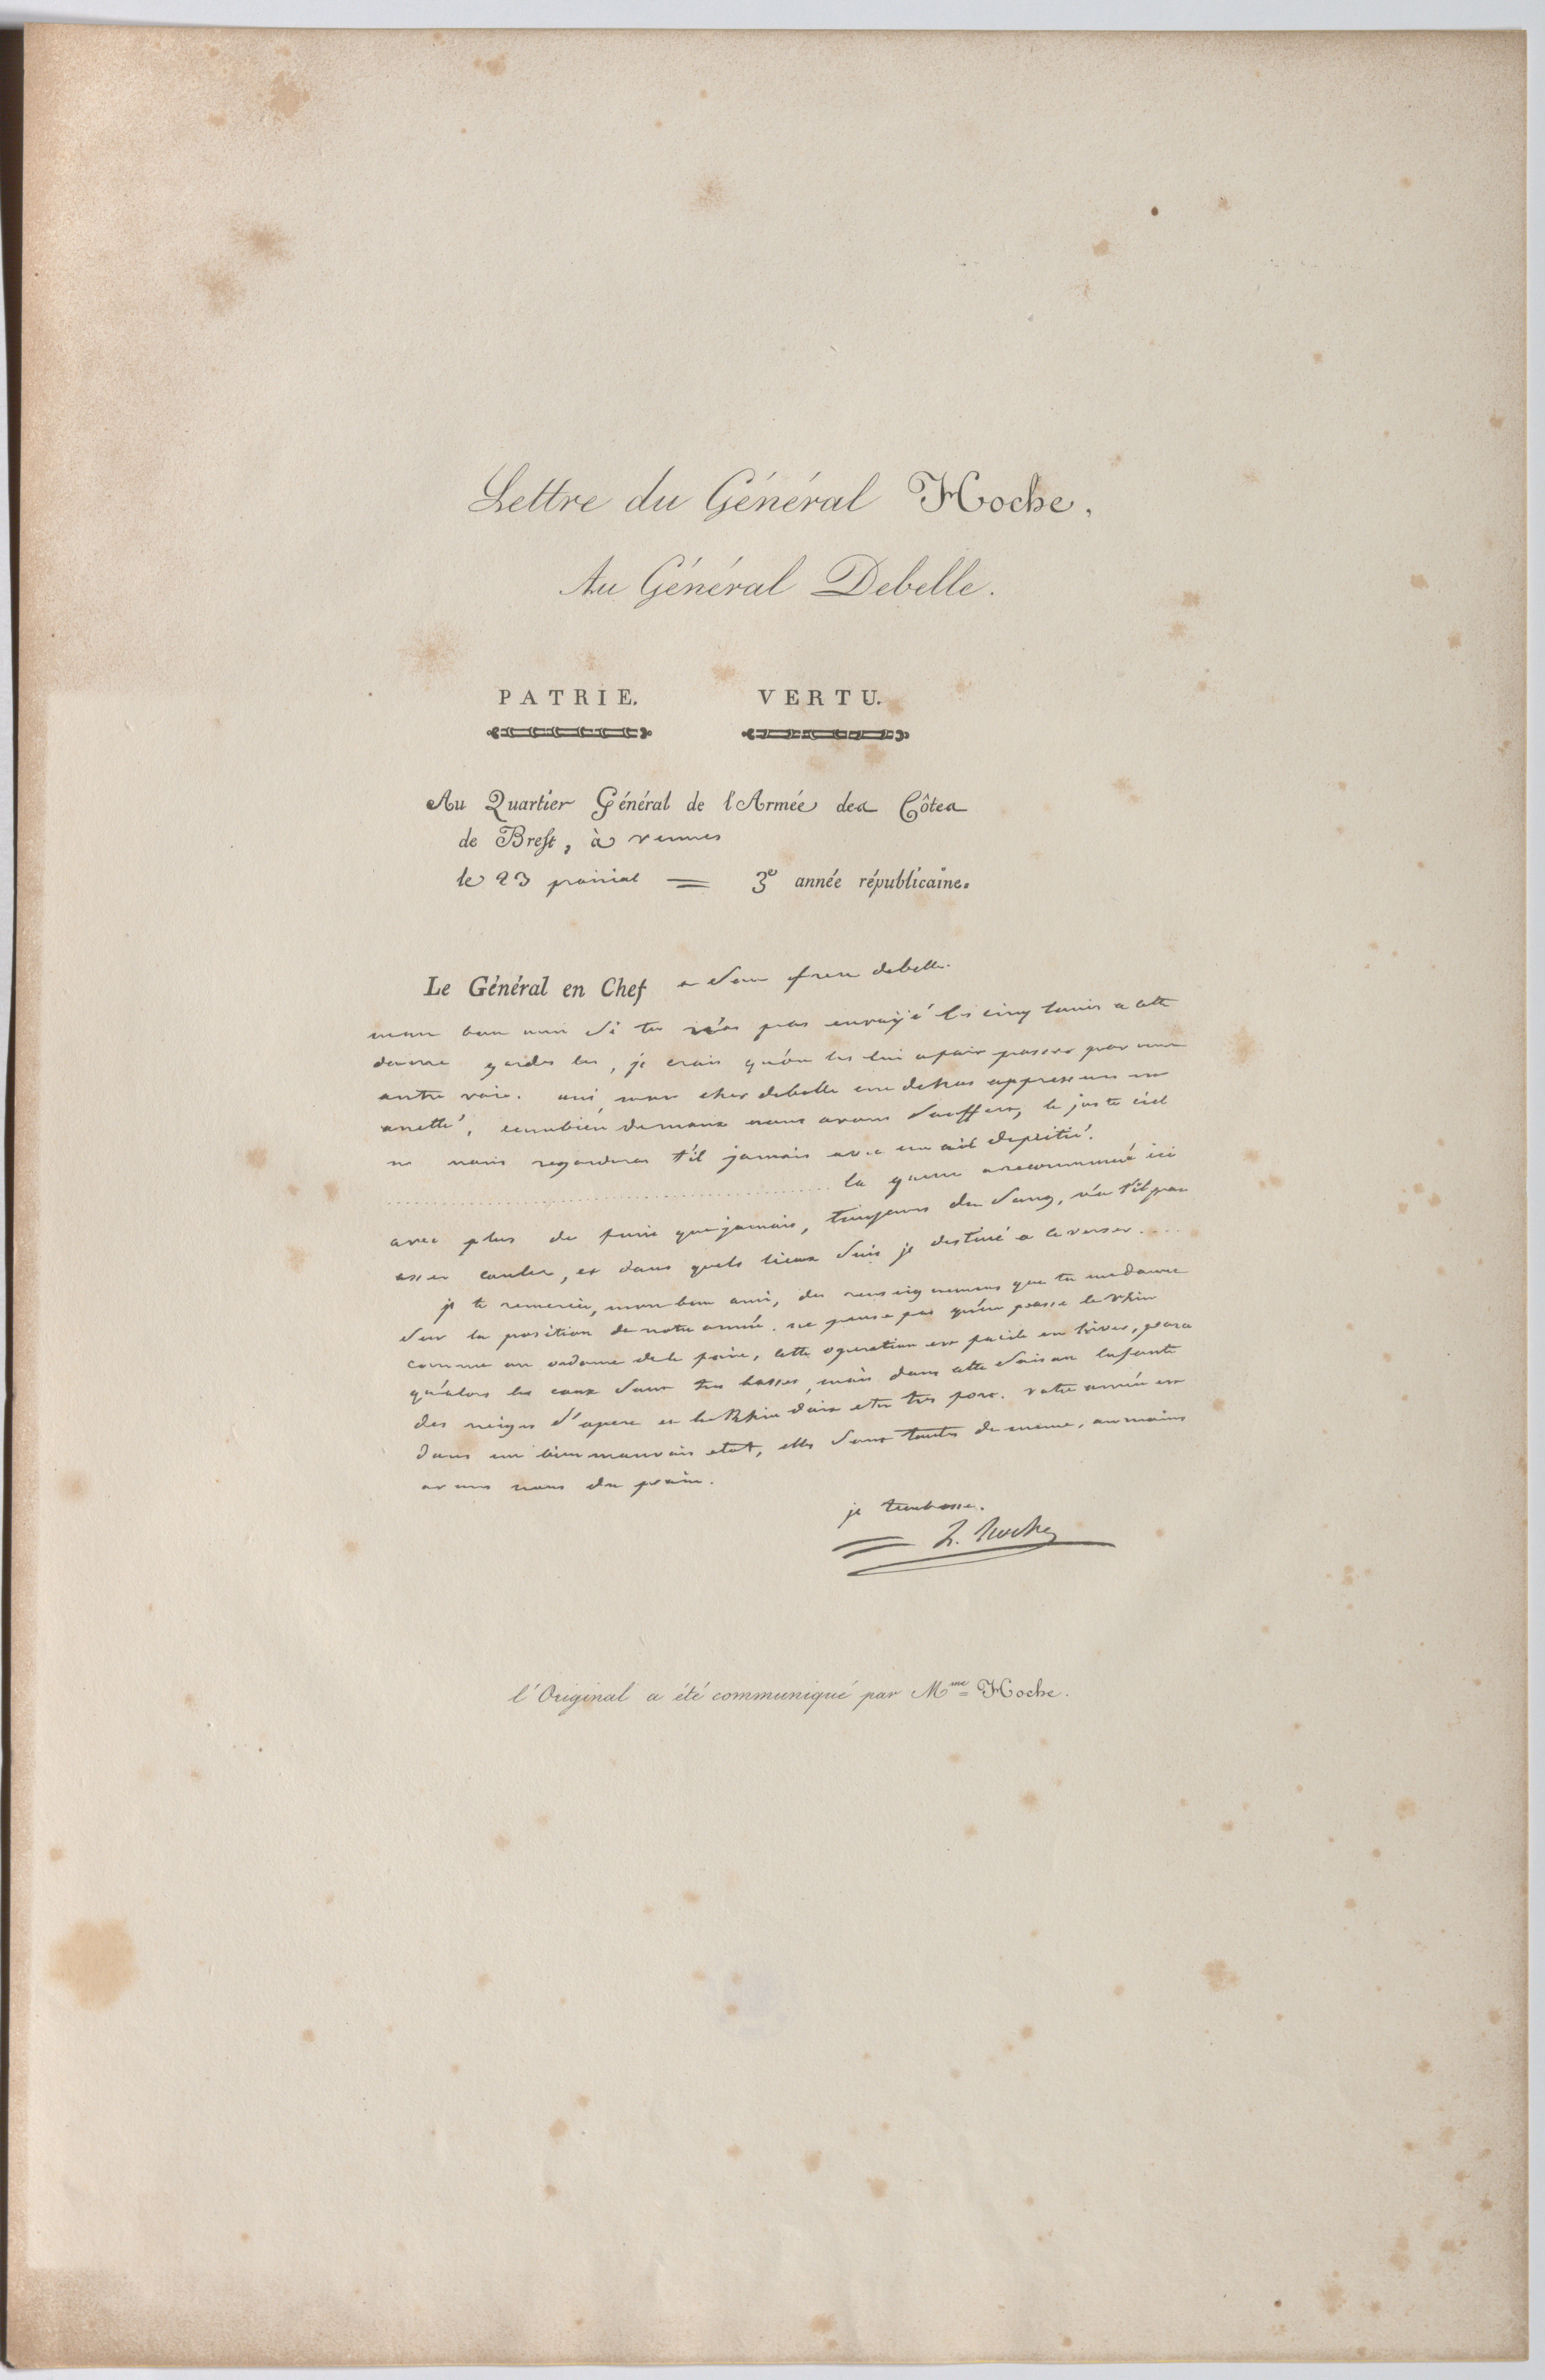 Lettre du Général Hoche,
Au Général Debelle.
PATRIE. VERTU.
Au Quartier Général de l'Armée des Côtes
de Brest, à vennes
le 23 prairial = 3e année républicaine.
Le Général en Chef a son frere debelle.
mon bon ami si tu n'as pas envoyé les cinq louis a cette
damme gardes les, je crois qu'on les lui a fait passer par une
autre voie. oui, mon cher debelle une oppression
combien de maux nous avons souffert, le juste ciel
ne nous regardera t'il jamais avec un oeil de pitié.
la guerre a recommencé ici
avec plus de furie que jamais, toujours du sang, n'a t'il pas
assez coulé, et dans quels lieux suis je destiné a le verser....
je te remercie, mon bon ami, des renseignemens que tu me donne
sur la position de notre armée. ne pense pas qu'on passe le Rhin
comme on ordonne de le faire, cette operation est facile en hiver, parce
qu'alors les eaux sont tres basses, mais dans cette saison la fonte
des neiges s'opere et le Rhin doit etre tres fort. votre armée est
dans un bien mauvais etat, elles sont toutes de meme, au moins
avons nous du pain.
je t'embrasse.
L. Hoche
l'Original a été communiqué par Mme Hoche.